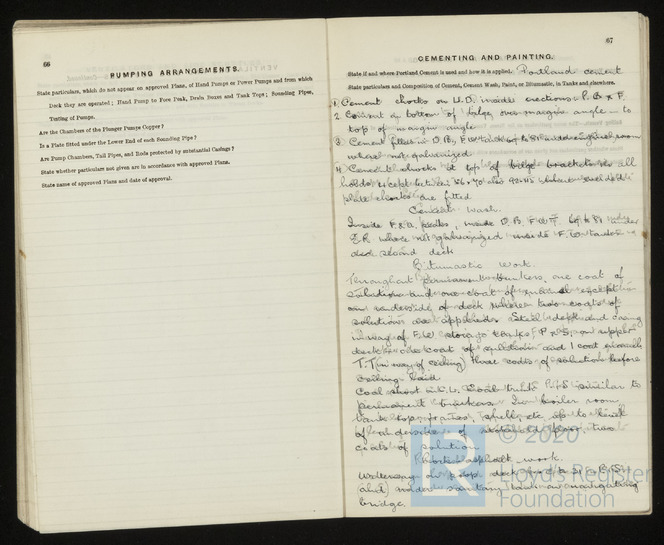 66
PUMPING ARRANGEMENTS.
State particulars, which do not appear on approved Plans, of Hand Pumps or Power Pumps and from which
Deck they are operated; Hand Pump to Fore Peak, Drain Boxes and Tank Tops; Sounding Pipes,
Testing of Pumps.
Are the Chambers of the Plunger Pumps Copper?
Is a Plate fitted under the Lower End of each Sounding Pipe?
Are Pump Chambers, Tail Pipes, and Rods protected by substantial Casings?
State whether particulars not given are in accordance with approved Plans.
State name of approved Plans and date of approval.
67
CEMENTING AND PAINTING.
State if and where Portland Cement is used and how it is applied. Portland cement
State particulars and Composition of Cement, Cement Wash, Paint, or Bitumastic, in Tanks and elsewhere.
1 Cement chocks on U.D. inside erections P. B & F.
2 Cement in bottom of bilge over margin angle to
top of margin angle
3 Cement fillets in D.B.,
where not galvanized
4 Cement chocks at top of bilge brackets in all
holds except between
plate chocks are fitted
Cement Wash.
Inside F & A peaks, inside D.B.
E.R. where not galvanized inside F.W. tanks
deck second deck
Bitumastic Work.
Throughout permanent bunkers, one coat of
solution and one coat of enamel except
on underside of deck where two coats of
solution are applied. Steel deck and casing
in way of F.W. storage tanks, P & S, on upper
deck one coat of solution and 1 coat enamel
T.T. (in way of ceiling) three coats of solution before
ceiling laid
Coal shoot in U.D. Coal trunk P & S similar to
permanent bunkers. In boiler room,
tank top, frames, shell, etc up to
of two
coats of solution
asphalt work.
Waterway on poop deck
and under sanitary tank on navigating
bridge.
© 2020
Lloyd's Register
Foundation